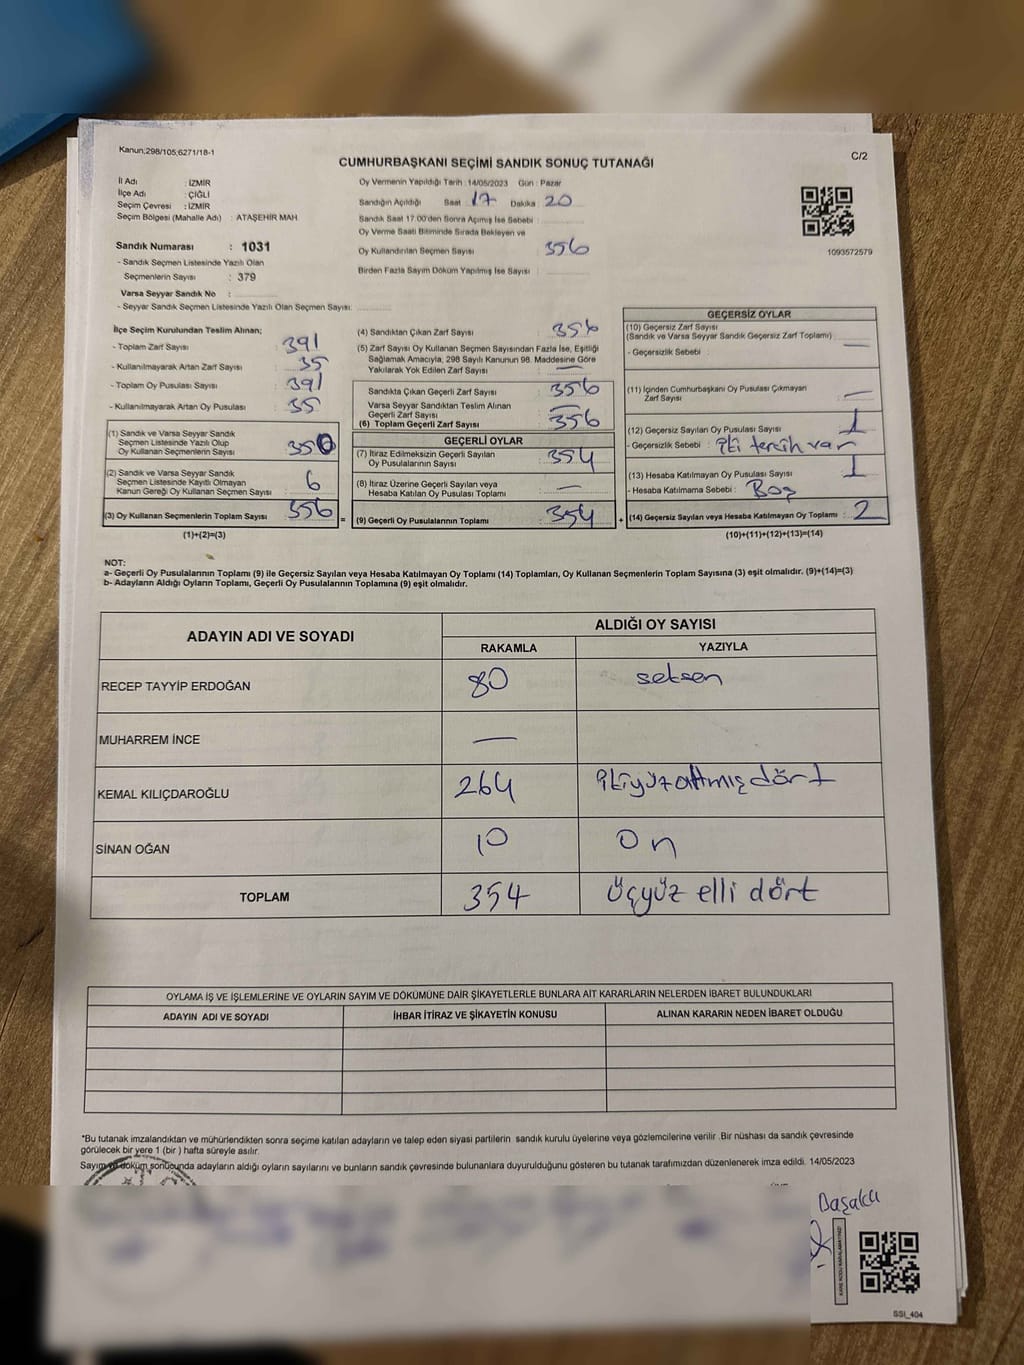 Kanun;298/105;6271/18-1
CUMHURBAŞKANI SEÇİMİ SANDIK SONUÇ TUTANAĞI
C/2
İl Adı : İZMİR
İlçe Adı : ÇİĞLİ
Seçim Çevresi : İZMİR
Seçim Bölgesi (Mahalle Adı) : ATAŞEHİR MAH
Sandık Numarası : 1031
- Sandık Seçmen Listesinde Yazılı Olan
Seçmenlerin Sayısı : 379
Varsa Seyyar Sandık No :
- Seyyar Sandık Seçmen Listesinde Yazılı Olan Seçmen Sayısı:
Oy Vermenin Yapıldığı Tarih : 14/05/2023 Gün : Pazar
Sandığın Açıldığı Saat 17 Dakika 20
Sandık Saat 17:00'den Sonra Açımış İse Sebebi :
Oy Verme Saati Bitiminde Sırada Bekleyen ve
Oy Kullandırılan Seçmen Sayısı : 356
Birden Fazla Sayım Döküm Yapılmış İse Sayısı :
1093572579
İlçe Seçim Kurulundan Teslim Alınan;
- Toplam Zarf Sayısı : 391
- Kullanılmayarak Artan Zarf Sayısı : 35
- Toplam Oy Pusulası Sayısı : 391
- Kullanılmayarak Artan Oy Pusulası : 35
(1) Sandık ve Varsa Seyyar Sandık
Seçmen Listesinde Yazılı Olup
Oy Kullanan Seçmenlerin Sayısı : 350
(2) Sandık ve Varsa Seyyar Sandık
Seçmen Listesinde Kayıtlı Olmayan
Kanun Gereği Oy Kullanan Seçmen Sayısı : 6
(3) Oy Kullanan Seçmenlerin Toplam Sayısı : 356
(1)+(2)=(3)
(4) Sandıktan Çıkan Zarf Sayısı : 356
(5) Zarf Sayısı Oy Kullanan Seçmen Sayısından Fazla İse, Eşitliği
Sağlamak Amacıyla, 298 Sayılı Kanunun 98. Maddesine Göre
Yakılarak Yok Edilen Zarf Sayısı : —
Sandıkta Çıkan Geçerli Zarf Sayısı : 356
Varsa Seyyar Sandıktan Teslim Alınan
Geçerli Zarf Sayısı : —
(6) Toplam Geçerli Zarf Sayısı : 356
GEÇERLİ OYLAR
(7) İtiraz Edilmeksizin Geçerli Sayılan
Oy Pusulalarının Sayısı : 354
(8) İtiraz Üzerine Geçerli Sayılan veya
Hesaba Katılan Oy Pusulası Toplamı : —
= (9) Geçerli Oy Pusulalarının Toplamı : 354
GEÇERSİZ OYLAR
(10) Geçersiz Zarf Sayısı
(Sandık ve Varsa Seyyar Sandık Geçersiz Zarf Toplamı) : —
- Geçersizlik Sebebi :
(11) İçinden Cumhurbaşkanı Oy Pusulası Çıkmayan
Zarf Sayısı : —
(12) Geçersiz Sayılan Oy Pusulası Sayısı : 1
- Geçersizlik Sebebi : iki tercih var
(13) Hesaba Katılmayan Oy Pusulası Sayısı : 1
- Hesaba Katılmama Sebebi : Boş
+ (14) Geçersiz Sayılan veya Hesaba Katılmayan Oy Toplamı : 2
(10)+(11)+(12)+(13)=(14)
NOT:
a- Geçerli Oy Pusulalarının Toplamı (9) ile Geçersiz Sayılan veya Hesaba Katılmayan Oy Toplamı (14) Toplamları, Oy Kullanan Seçmenlerin Toplam Sayısına (3) eşit olmalıdır. (9)+(14)=(3)
b- Adayların Aldığı Oyların Toplamı, Geçerli Oy Pusulalarının Toplamına (9) eşit olmalıdır.
ADAYIN ADI VE SOYADI
ALDIĞI OY SAYISI
RAKAMLA YAZIYLA
RECEP TAYYİP ERDOĞAN 80 seksen
MUHARREM İNCE —
KEMAL KILIÇDAROĞLU 264 ikiyüzaltmışdört
SİNAN OĞAN 10 on
TOPLAM 354 üçyüz elli dört
OYLAMA İŞ VE İŞLEMLERİNE VE OYLARIN SAYIM VE DÖKÜMÜNE DAİR ŞİKAYETLERLE BUNLARA AİT KARARLARIN NELERDEN İBARET BULUNDUKLARI
ADAYIN ADI VE SOYADI İHBAR İTİRAZ VE ŞİKAYETİN KONUSU ALINAN KARARIN NEDEN İBARET OLDUĞU
*Bu tutanak imzalandıktan ve mühürlendikten sonra seçime katılan adayların ve talep eden siyasi partilerin sandık kurulu üyelerine veya gözlemcilerine verilir .Bir nüshası da sandık çevresinde
görülecek bir yere 1 (bir ) hafta süreyle asılır.
Sayım ve döküm sonucunda adayların aldığı oyların sayılarını ve bunların sandık çevresinde bulunanlara duyurulduğunu gösteren bu tutanak tarafımızdan düzenlenerek imza edildi. 14/05/2023
SSI_404